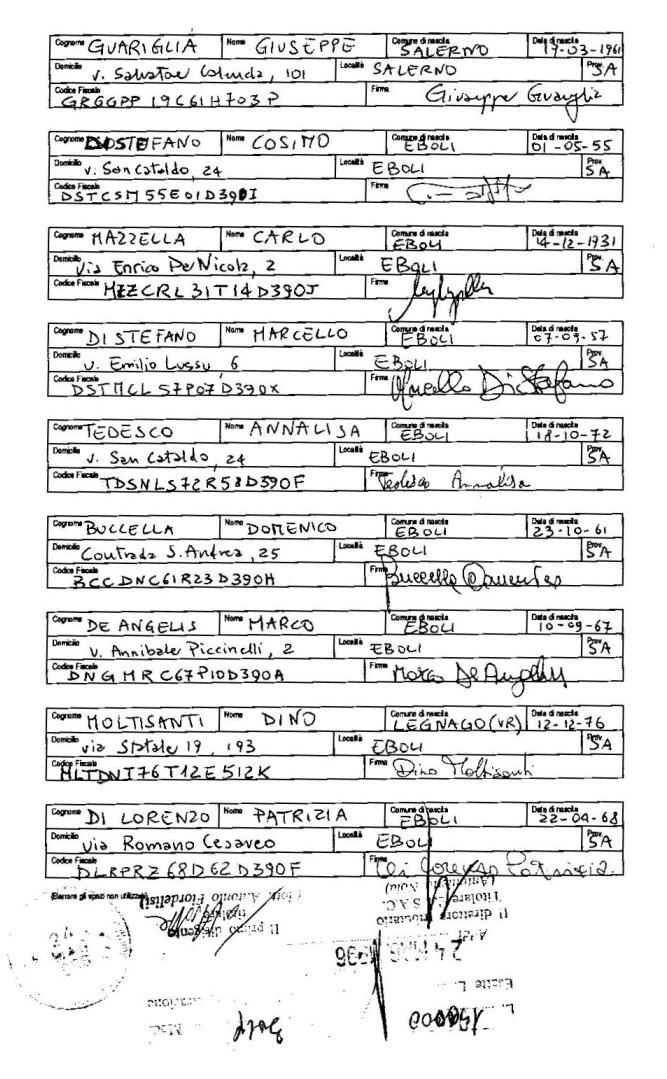 Cognome GUARIGLIA Nome GIUSEPPE Comune di nascita SALERNO Data di nascita 17-03-1961
Domicilio V. Salvatore Calenda, 101 Località SALERNO Prov. SA
Codice Fiscale GRGGPP19C61H703P Firma Giuseppe Guariglia
Cognome DISTEFANO Nome COSIMO Comune di nascita EBOLI Data di nascita 01-05-55
Domicilio V. San Cataldo, 24 Località EBOLI Prov. SA
Codice Fiscale DSTCSM55E01D390I Firma
Cognome MAZZELLA Nome CARLO Comune di nascita EBOLI Data di nascita 14-12-1931
Domicilio Via Enrico De Nicola, 2 Località EBOLI Prov. SA
Codice Fiscale MZZCRL31T14D390J Firma
Cognome DI STEFANO Nome MARCELLO Comune di nascita EBOLI Data di nascita 07-09-57
Domicilio V. Emilio Lussu 6 Località EBOLI Prov. SA
Codice Fiscale DSTMCL57P07D390X Firma Marcello Di Stefano
Cognome TEDESCO Nome ANNALISA Comune di nascita EBOLI Data di nascita 18-10-72
Domicilio V. San Cataldo, 24 Località EBOLI Prov. SA
Codice Fiscale TDSNLS72R58D390F Firma Tedesco Annalisa
Cognome BUCCELLA Nome DOMENICO Comune di nascita EBOLI Data di nascita 23-10-61
Domicilio Contrada S. Andrea, 25 Località EBOLI Prov. SA
Codice Fiscale BCCDNC61R23D390H Firma Buccella Domenico
Cognome DE ANGELIS Nome MARCO Comune di nascita EBOLI Data di nascita 10-09-67
Domicilio V. Annibale Piccinelli, 2 Località EBOLI Prov. SA
Codice Fiscale DNGMRC67P10D390A Firma Marco De Angelis
Cognome MOLTISANTI Nome DINO Comune di nascita LEGNAGO (VR) Data di nascita 12-12-76
Domicilio via Statale 19, 193 Località EBOLI Prov. SA
Codice Fiscale MLTDNI76T12E512K Firma Dino Moltisanti
Cognome DI LORENZO Nome PATRIZIA Comune di nascita EBOLI Data di nascita 22-04-68
Domicilio via Romano Cesareo Località EBOLI Prov. SA
Codice Fiscale DLRPRZ68D62D390F Firma Di Lorenzo Patrizia
(Barrare gli spazi non utilizzati)
L.
Esatte L.
1996
Il direttore tributario
Titolare S.A.C.
Il primo dirigente
(dott. Antonio Fiordelisi)